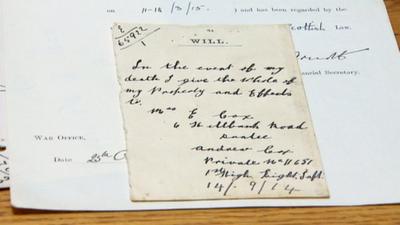 on 11-14/3/15.) and has been regarded by the
Scottish Law.
Secretary.
E
1
WILL.
In the event of my
death I give the whole of
my Property and Effects
to.
Mrs E Cox
6 Road
Dundee
Andrew Cox
Private No 11651
1st High Light Inft
14/9/14
WAR OFFICE,
Date 25th